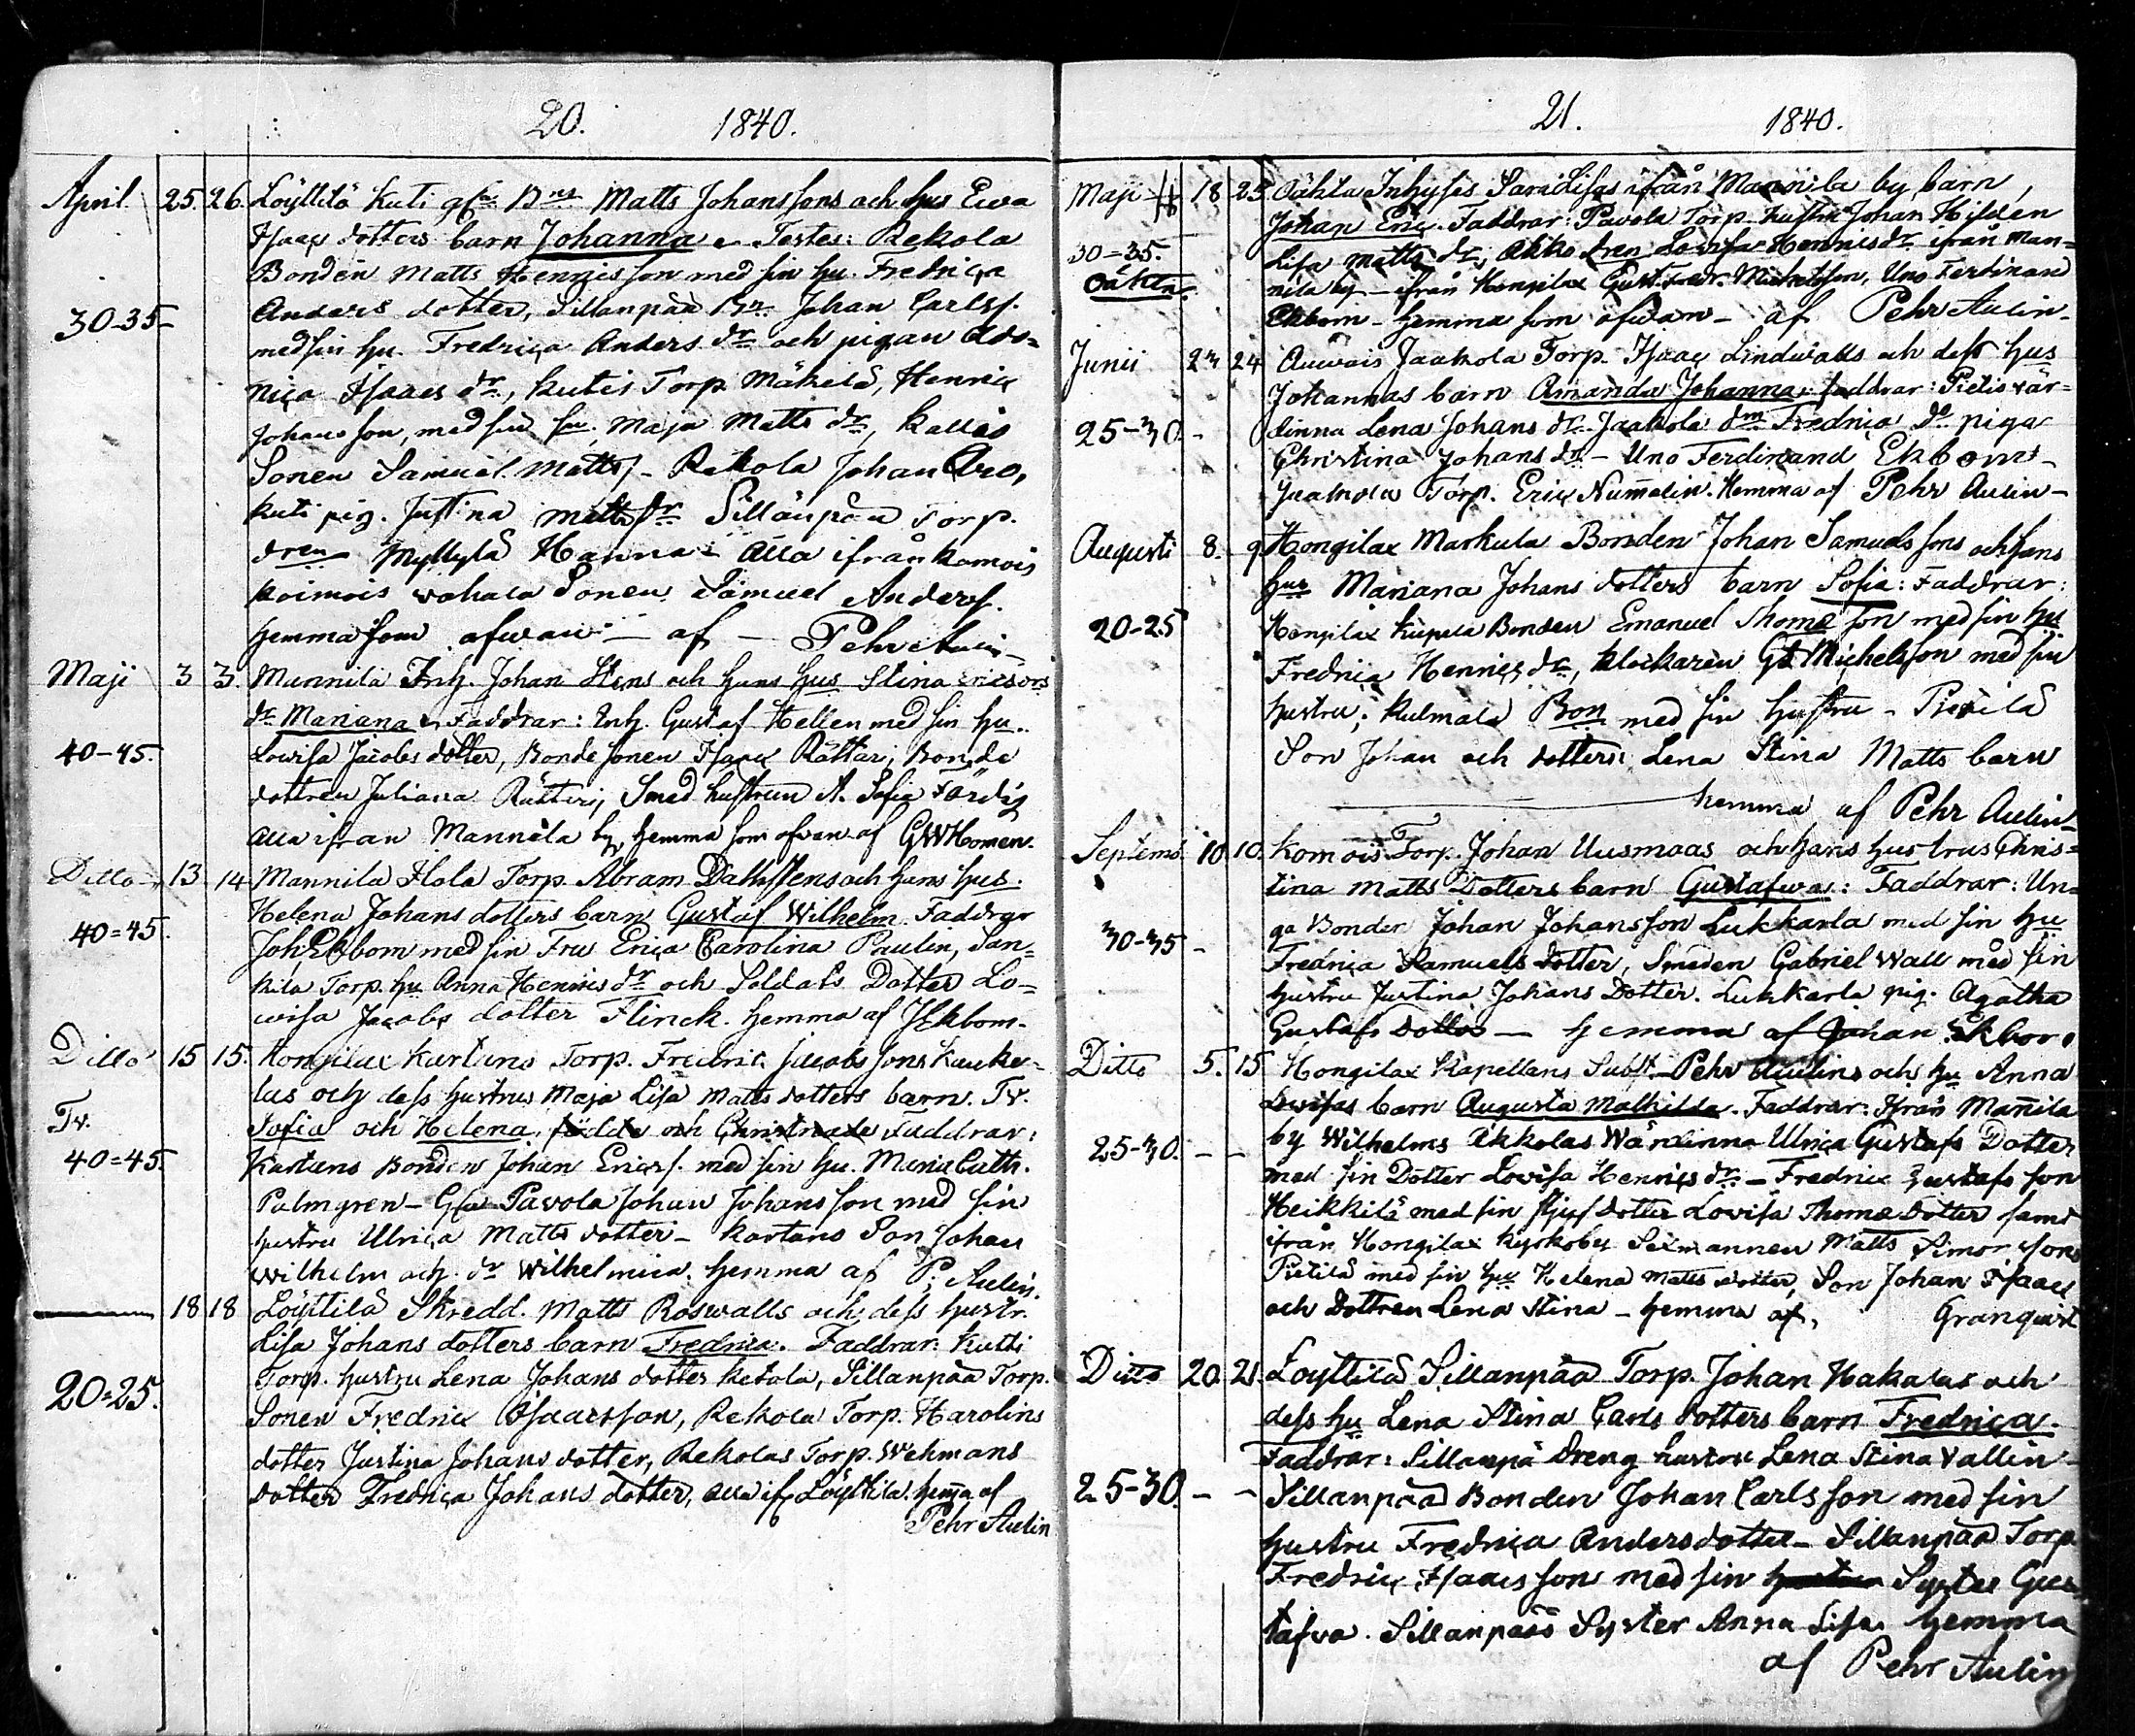 20. 1840.
April. 25. 26. Löyttilä Kuti gfu. Bns Matts Johanssons och hus Ewa
Isaacs dotters barn Johanna Testes: Rekola
Bonden Matts Hennisson med sin hu. Fredrica
30-35- Anders dotter, Sillanpää Bn. Johan Carlss.
med sin hu. Fredrica Anders dr och pigan
nica Isaacs dr, Kutis Torp Mäkelä, Henric
Johansson, med sin hu. Maja Matts dr, Kallis
Sonen Samuel Matts. - Rekola Johan Aro,
Kuti pig. Justina Matts dr Sillänpää Torp.
dren Myllylä Hanna - Alla ifrån Komois
Koimois wahala Sonen Samuel Anderss.
hemma som ofwan - af - Pehr Aulin
Maji 3 3. Mannila Inh. Johan Stens och hans hus Stina Erics
dr Mariana Faddrar: Inh. Gustaf Hellen med sin hu.
40-45. Lowisa Jacobs dotter, Bonde sonen Isaac Rättäri, Bonde
dottren Juliana Rätteri, Smed hustrun A. Sofia Färdig
alla ifrån Mannila by, hemma som ofwan af GWHomen.
Ditto 13 14 Mannila Hola Torp. Abram Dahlstens och hans hus.
Helena Johans dotters barn Gustaf Wilhelm Faddrar
40=45. Joh. Ekbom med sin Fru Erica Carolina Paulin, San=
kila Torp. hu Anna Henrics dr och Soldats Dotter Lo=
wisa Jacobs dotter Flinck. hemma af JEkbom.
Ditto 15 15. Hongilax Kartano Torp. Fredric Jacobssons Kauke-
las och dess hustrus Maja Lisa Matts dotters barn. Tv.
Tv. Sofia och Helena, födde och Christnade Faddrar:
40=45. Kartano Bonden Johan Ericss. med sin hu. Maria Cath.
Palmgren - Gfu Pavola Johan Johansson med sin
hustru Ulrica Matts dotter - Kartano Son Johan
Wilhelm och dr Wilhelmica. hemma af P. Aulin.
18 18 Löyttilä Skredd. Matts Roswalls och dess hustr.
Lisa Johans dotters barn Fredrica. Faddrar: Kutti
Torp. hustru Lena Johans dotter Ketola, Sillanpää Torp.
20=25. Sonen Fredric Isaacsson, Rekola Torp. Harolins
dotter Justina Johans dotter, Rekolas Torp. Wehmans
dotter Fredrica Johans dotter, alla if. Löyttilä. hemma af
Pehr Aulin
21. 1840.
Maji 18 25 Oähta Inhyses Sara Lisas ifrån Mannila by, barn,
Johan Eric. Faddrar: Pavola Torp. hustru Johan Hilden
30=35. Lisa Matts dr, Akko dren Lovisa Hennis dr ifrån Man=
Oähta. nila by - ifrån Hongilax Gust. Fredr. Michelsson, Uno Ferdinand
Ekbom - hemma som ofwan - af Pehr Aulin-
Junii 23 24 Auvais Jaakola Torp. Isaac Lindwalls och dess hus
Johannas barn Amanda Johanna: faddrar: Pietis vär=
25-30. dinna Lena Johans dr. Jaakola dm Fredrica do piga
Christina Johans dr - Uno Ferdinand Ekbom -
Jaakola Torp. Eric Numelin. Hemma af Pehr Aulin -
Augusti 8. 9. Hongilax Markula Bonden Johan Samuelssons och hans
hus Mariana Johans dotters barn Sofia: Faddrar:
20-25 Hongilax Kupula Bonden Emanuel Thomasson med sin hu
Fredrica Hennics dr, klockaren Gt. Michelsson med sin
hustru; Kulmala Bon med sin hustru - Pietilä
Son Johan och dotters: Lena Stina Matts barn
hemma af Pehr Aulin=
Septemb. 10. 10. Komois Torp. Johan Uusmaas och hans hustrus Chris=
tina Matts Dotters barn Gustafwa: Faddrar: Un=
30-35 - ga Bonden Johan Johansson Lukkarla med sin hu
Fredrica Samuels dotter, Smeden Gabriel Wall med sin
hustru Justina Johans Dotter. Lukkarla pig. Agatha
Gustafs Dotter - hemma af Johan Ekbom
Ditto 5. 15 Hongilax Kapellans Subst. Pehr Aulins och hu Anna
Lovisas barn Augusta Mathilda. Faddrar: Ifrån Manila
25-30. - - by Wilhelms Akkolas Wärdinna Ulrica Gustafs Dotter
med sin Dotter Lovisa Henrics dr. - Fredric Gustafs son
Heikkilä med sin styf dotter Lovisa Thomas Dotter samt
ifrån Hongilax Kyrkoby Sexmannen Matts Simonsson
Pietilä med sin hu Helena Matts dotter, Son Johan Isaac
och Dottren Lena Stina - hemma af, Granqwist
Ditto 20. 21. Löyttilä Sillanpää Torp. Johan Hakalas och
dess hu Lena Stina Carls dotters barn Fredrica.
Faddrar: Sillanpä Dreng hustru Lena Stina Vallin
25-30. - - Sillanpää Bonden Johan Carlsson med sin
hustru Fredrica Andersdotter - Sillanpää Torp
Fredric Isaacsson med sin Syster Gus
tafva. Sillanpääs Syster Anna Lisa. hemma
af Pehr Aulin